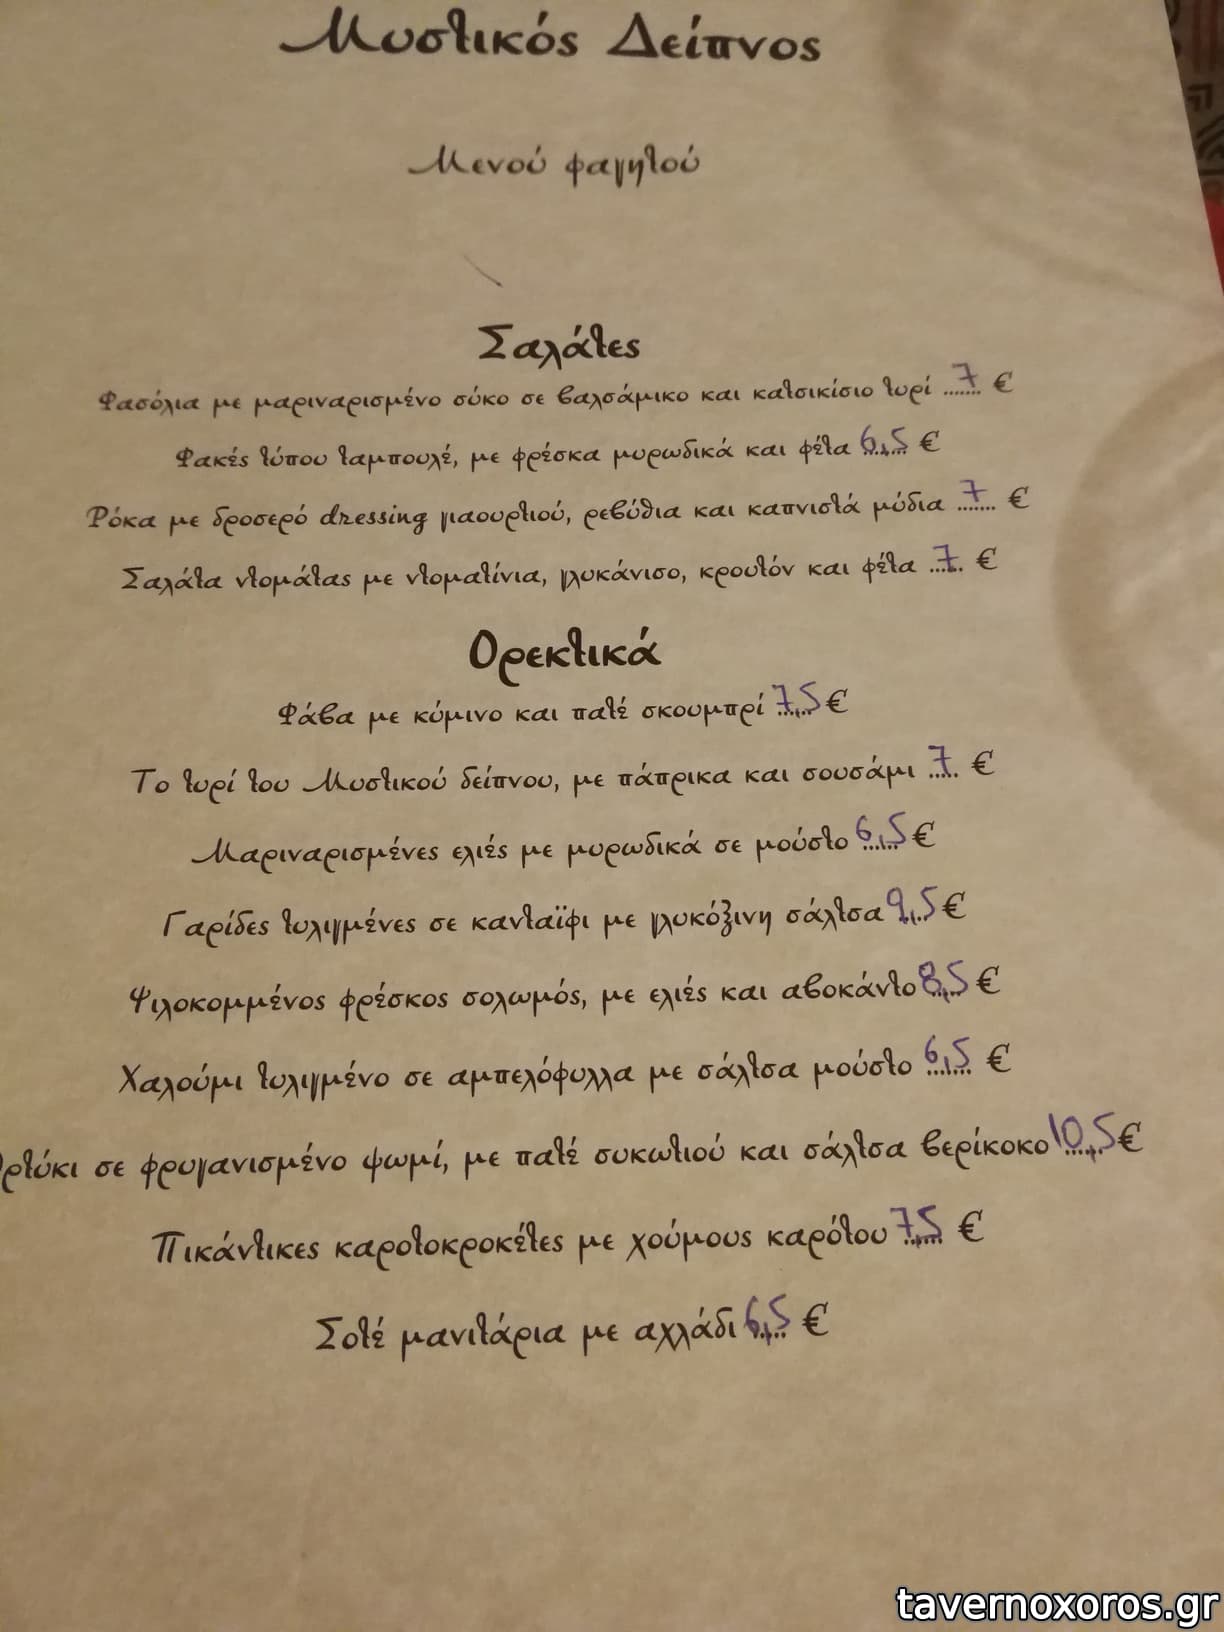 Μυστικός Δείπνος
Μενού φαγητού
Σαλάτες
Φασόλια με μαριναρισμένο σύκο σε βαλσάμικο και κατσικίσιο τυρί 7 €
Φακές τύπου ταμπουλέ, με φρέσκα μυρωδικά και φέτα 6,5 €
Ρόκα με δροσερό dressing γιαουρτιού, ρεβύθια και καπνιστά μύδια 7 €
Σαλάτα ντομάτας με ντοματίνια, γλυκάνισο, κρουτόν και φέτα 7 €
Ορεκτικά
Φάβα με κύμινο και πατέ σκουμπρί 7,5 €
Το τυρί του Μυστικού δείπνου, με πάπρικα και σουσάμι 7 €
Μαριναρισμένες ελιές με μυρωδικά σε μούστο 6,5 €
Γαρίδες τυλιγμένες σε κανταϊφι με γλυκόξινη σάλτσα 9,5 €
Ψιλοκομμένος φρέσκος σολωμός, με ελιές και αβοκάντο 8,5 €
Χαλούμι τυλιγμένο σε αμπελόφυλλα με σάλτσα μούστο 6,5 €
Ορτύκι σε φρυγανισμένο ψωμί, με πατέ συκωτιού και σάλτσα βερίκοκο 10,5 €
Πικάντικες καροτοκροκέτες με χούμους καρότου 7,5 €
Σοτέ μανιτάρια με αχλάδι 6,5 €
tavernoxoros.gr